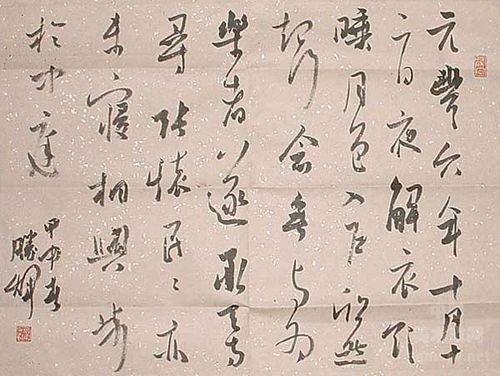 元豐六年十月十
二日夜解衣欲
睡月色入户欣然
起行念無与为
樂者遂承天寺
尋張懷民〻亦
未寢相與步
於中庭
甲申春
勝輝